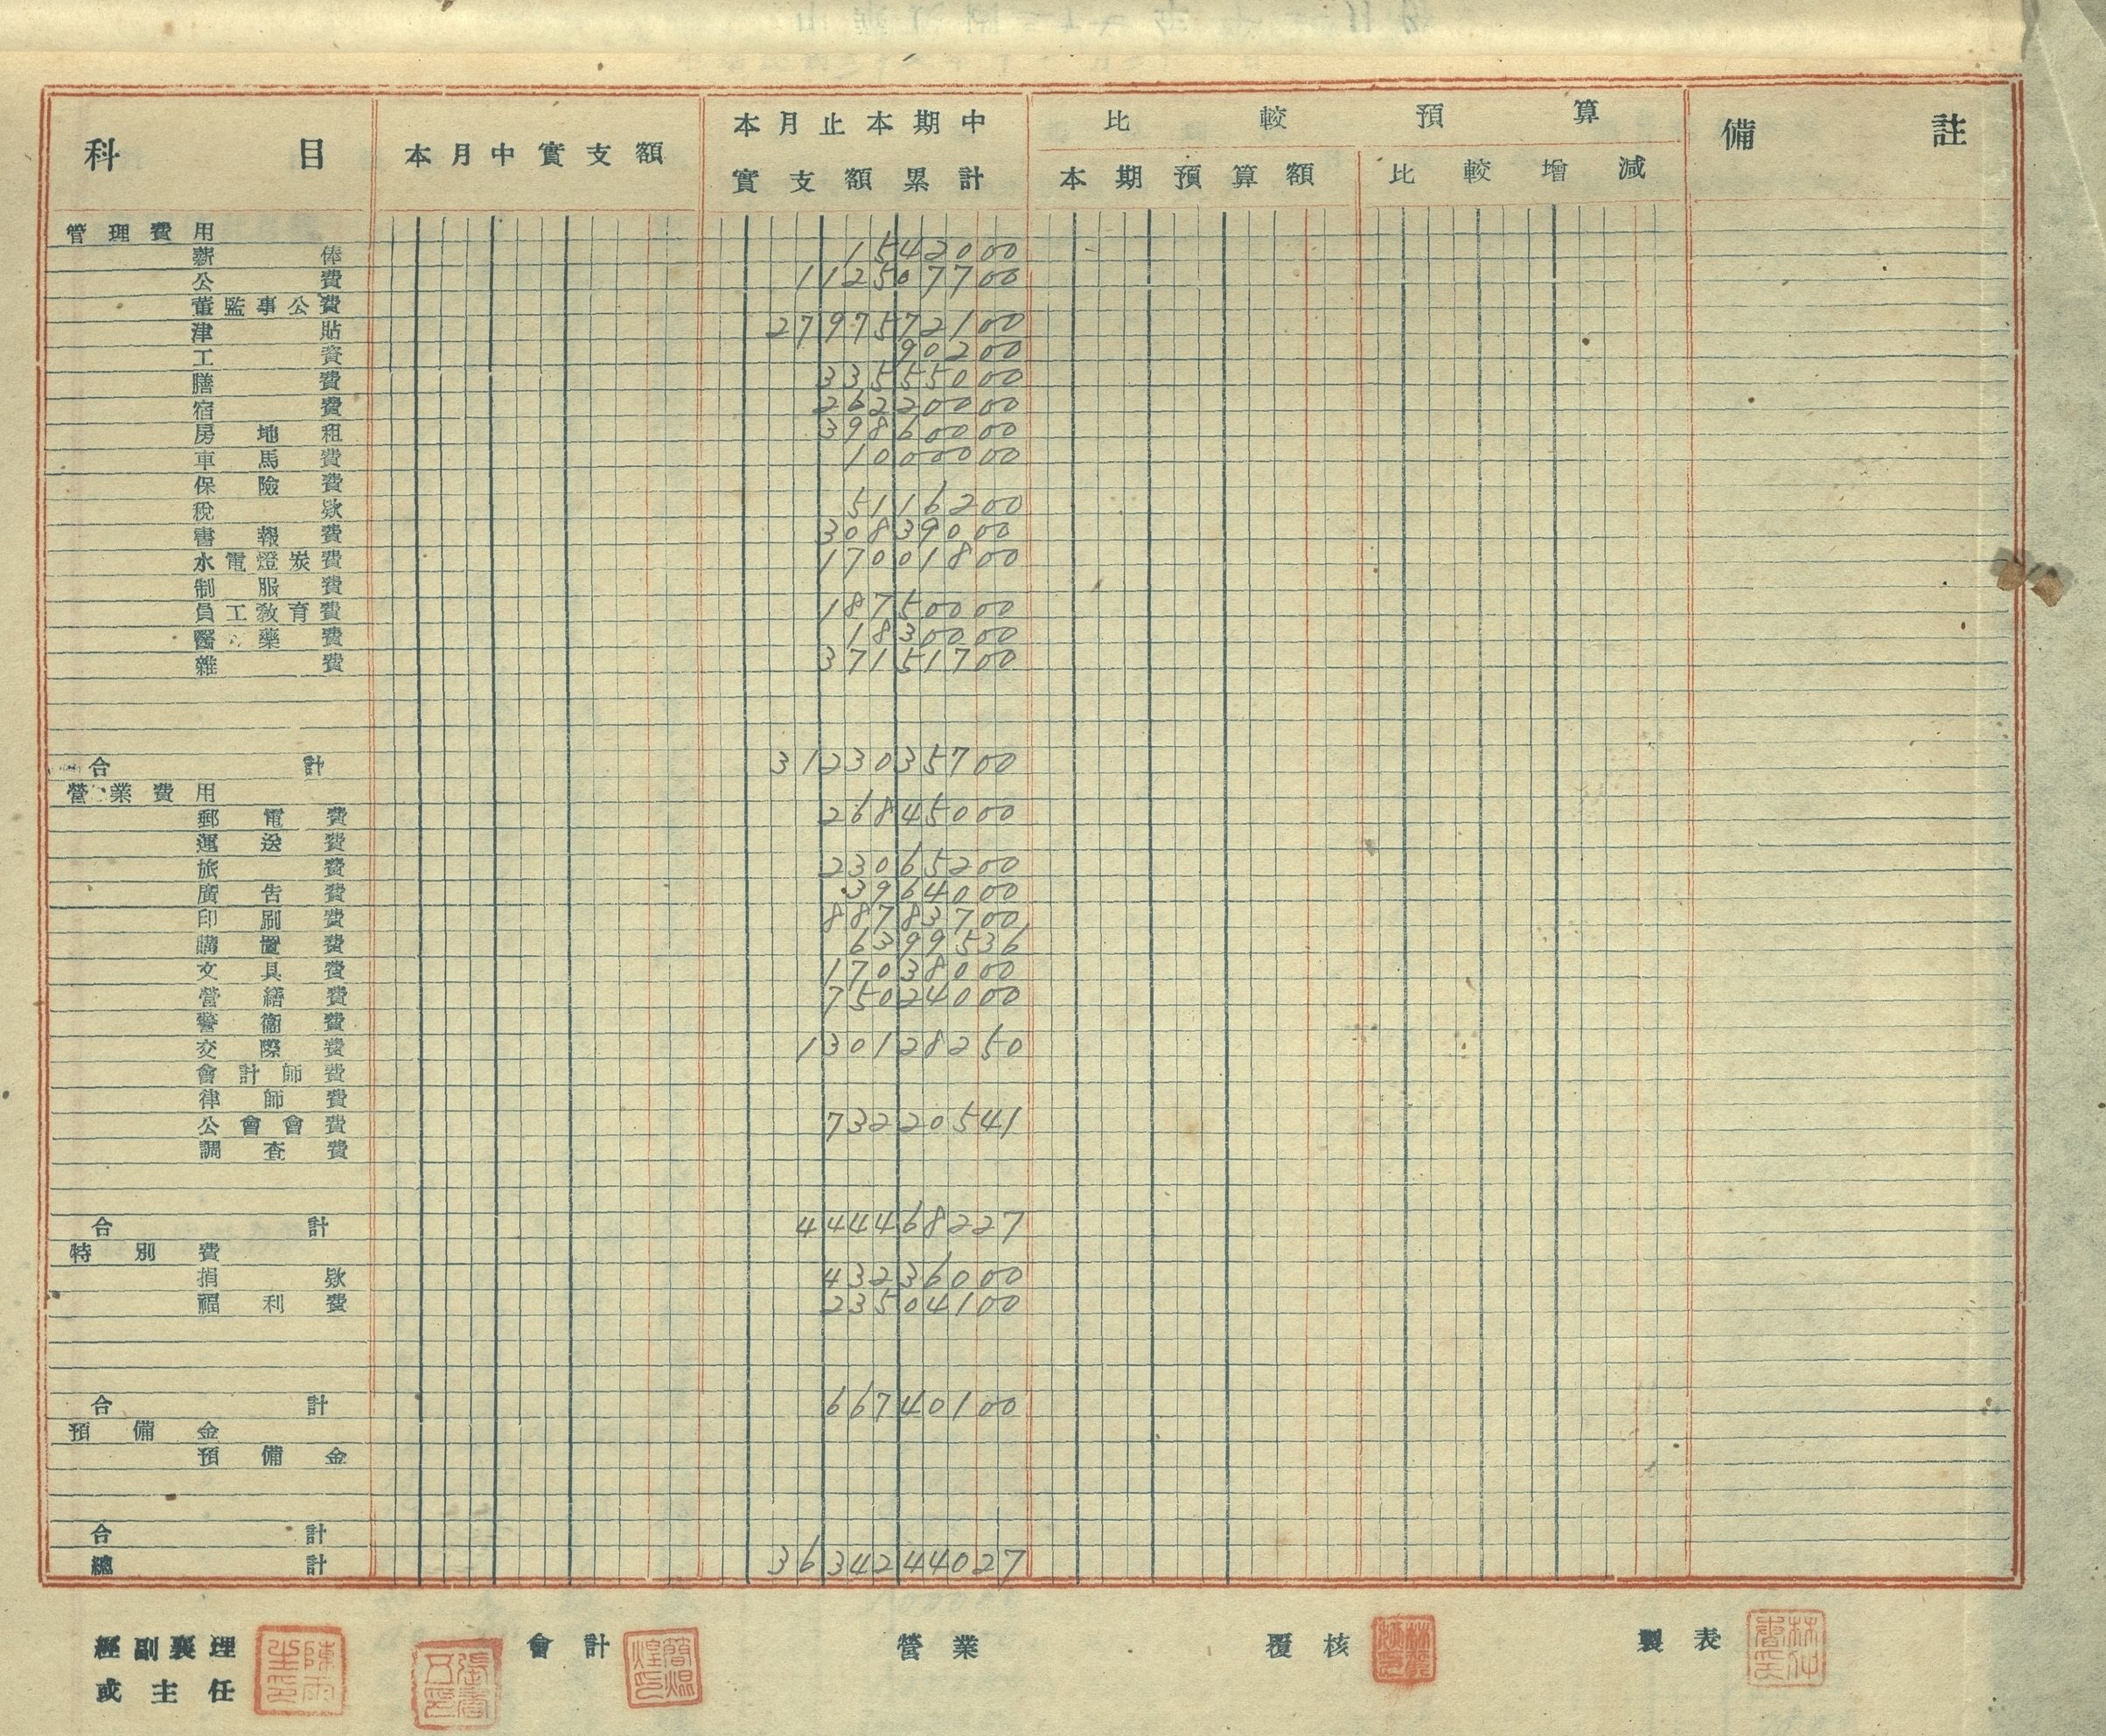 科目 本月中實支額 本月止本期中實支額累計 比較預算 備註
本期預算額 比較增減
管理費用
薪俸 1542000
公費 112507700
董監事公費
津貼 2797572100
工資 90200
膳費 33555000
宿費 26220000
房地租 39860000
車馬費 1000000
保險費
稅欵 5116200
書報費 30839000
水電燈炭費 17001800
制服費
員工教育費 18750000
醫藥費 1830000
雜費 37151700
合計 3123035700
營業費用
郵電費 26845000
運送費
旅費 23065200
廣告費 3964000
印刷費 88783700
購置費 6399536
文具費 17038000
營繕費 75024000
警衞費
交際費 130128250
會計師費
律師費
公會會費 73220541
調查費
合計 444468227
特別費
捐欵 43236000
福利費 23504100
合計 66740100
預備金
預備金
合計
總計 3634244027
經副襄理 會計 營業 覆核 製表
或主任